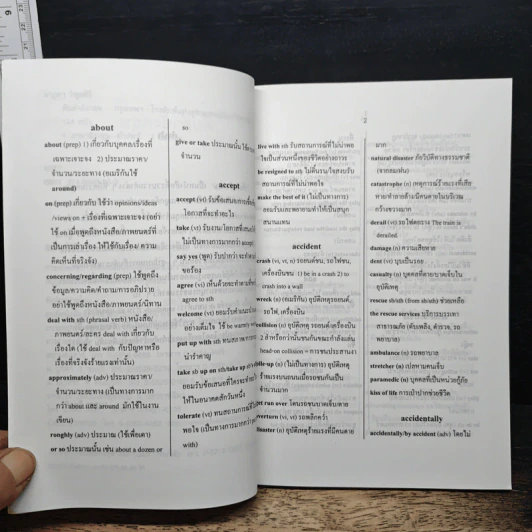 about
about (prep) 1) เกี่ยวกับบุคคล/เรื่องที่
เฉพาะเจาะจง 2) ประมาณราคา/
จำนวน/ระยะทาง (อเมริกันใช้
around)
on (prep) เกี่ยวกับ ใช้ว่า opinions/ideas
/views on + เรื่องที่เฉพาะเจาะจง (อย่า
ใช้ on เมื่อพูดถึงหนังสือ/ภาพยนตร์ที่
เป็นการเล่าเรื่อง ให้ใช้กับเรื่อง/ความ
คิดเห็นที่จริงจัง)
concerning/regarding (prep) ใช้พูดถึง
ข้อมูล/ความคิด/คำถาม/การอภิปราย
อย่าใช้พูดถึงหนังสือ/ภาพยนตร์/นิทาน
deal with sth (phrasal verb) หนังสือ/
ภาพยนตร์/ละคร deal with เกี่ยวกับ
เรื่องใด (ใช้ deal with กับปัญหาหรือ
เรื่องที่จริงจังร้ายแรงเท่านั้น)
approximately (adv) ประมาณราคา/
จำนวน/ระยะทาง (เป็นทางการมาก
กว่า about และ around มักใช้ในงาน
เขียน)
roughly (adv) ประมาณ (ใช้เพื่อเดา)
or so ประมาณนั้น เช่น about a dozen or
so
give or take ประมาณนั้น ใช้
จำนวน
accept
accept (vt) รับข้อเสนอ
โอกาสที่จะทำอะไร
take (vt) รับงาน/โอกาส
ไม่เป็นทางการมากกว่า accept
say yes (พูด) รับปากว่า จะทำ
ขอร้อง
agree (vi) เห็นด้วยจะทำตาม
agree to sth
welcome (vt) ยอมรับคำแนะนำ
อย่างเต็มใจ ใช้ be warmly
put up with sth ทนสภาพ
น่ารำคาญ
take sb up on sth/take up
ยอมรับข้อเสนอที่ใครจะทำ
ให้ในอนาคตสักวันหนึ่ง
tolerate (vt) ทนสถานการณ์
พอใจ (เป็นทางการมากกว่า
with)
2
live with sth รับสถานการณ์ที่ไม่น่าพอ
ใจเป็นส่วนหนึ่งของชีวิตอย่างถาวร
be resigned to sth ไม่ดิ้นรน/ใจสงบรับ
สถานการณ์ที่ไม่น่าพอใจ
make the best of it (ไม่เป็นทางการ)
ยอมรับและพยายามทำให้เป็นสนุก
สนานแทน
accident
crash (vi, vt, n) รถยนต์ชน, รถไฟ,
เครื่องบินชน 1) be in a crash 2) to
crash into a wall
wreck (n) (อเมริกัน) อุบัติเหตุรถยนต์,
รถไฟ, เครื่องบิน
collision (n) อุบัติเหตุ รถยนต์/เครื่องบิน
2 สำหรับกว่านั้นชนกันขณะกำลังแล่น
head-on collision = การชนประสานงา
pile-up (n) (ไม่เป็นทางการ) อุบัติเหตุ
ร้ายแรงบนถนนเมื่อรถชนกันเป็น
จำนวนมาก
get run over โดนรถชนบาดเจ็บ/ตาย
overturn (vi, vt) รถพลิกคว่ำ
disaster (n) อุบัติเหตุร้ายแรงที่มีคนตาย
มาก
natural disaster ภัยวิปัติทางธรรมชาติ
(จากลมฝน)
catastrophe (n) เหตุการณ์ร้ายแรงที่เสีย
หาย/ทำลายล้าง/มีคนตายในบริเวณ
กว้างขวางมาก
derail (vt) รถไฟตกราง The train is
derailed.
damage (n) ความเสียหาย
dent (vt) บุบเป็นรอย
casualty (n) บุคคลที่ตาย/บาดเจ็บใน
อุบัติเหตุ
rescue sb/sth (from sb/sth) ช่วยเหลือ
the rescue services บริการบรรเทา
สาธารณภัย (ดับเพลิง, ตำรวจ, รถ
พยาบาล)
ambulance (n) รถพยาบาล
stretcher (n) เปลหามคนเจ็บ
paramedic (n) บุคคลที่เป็นหน่วยกู้ภัย
kiss of life การเป่าปากช่วยชีวิต
accidentally
accidentally/by accident (adv) โดยไม่